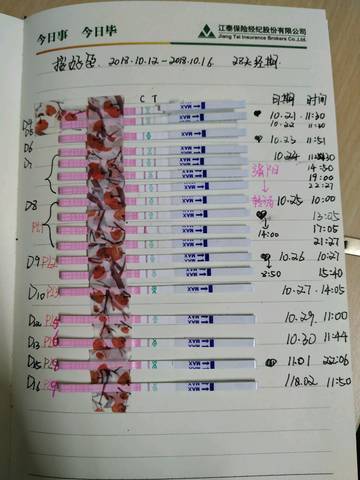 今日事 今日毕
江泰保险经纪股份有限公司
Jiang Tai Insurance Brokers Co.,Ltd.
2018.10.12-2018.10.16 28天经期
C T 日期 时间
10.21 11:30
D5 10.22 11:40
D6 10.23 11:51
D7 10.24
强阳 14:50
19:00
22:27
D8 转弱 10.25 10:00
13:25
17:05
14:00 21:27
D9 10.26 10:27
8:50 15:40
D10 10.27 14:05
D12 10.29 11:00
D13 10.30 11:44
D15 11.01 22:06
D16 11.02 11:50
MAX